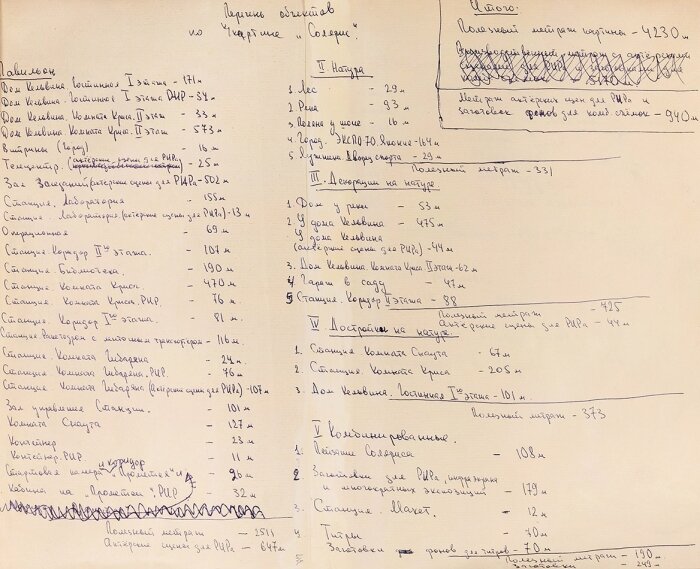 Перечень объектов
по к/картине "Солярис".
Павильон
Дом Кельвина Гостинная I этажа - 171 м
Дом Кельвина. Гостинная I этажа РИР - 54 м
Дом Кельвина. Комната Криса. II этаж - 33 м
Дом Кельвина. Комната Криса. II этаж - 573 м
Витрины (город) - 16 м
Телецентр. (актерские сцены для РИРа) - 25 м
Зал Заседаний (актерские сцены для РИРа) - 502 м
Станция. Лаборатория - 155 м
Станция. Лаборатория (актерские сцены для РИРа) - 13 м
Операционная - 69 м
Станция Коридор II го этажа. - 107 м
Станция Библиотека. - 190 м
Станция Комната Криса - 470 м
Станция. Комната Криса. РИР - 76 м
Станция. Коридор I го этажа. - 81 м.
Станция Ракетодром с малым транспортером - 116 м.
Станция. Комната Гибаряна - 24 м
Станция Комната Гибаряна. РИР - 76 м
Станция Комната Гибаряна (актерские сцены для РИРа) - 107 м
Зал управления Станции. - 101 м
Комната Снаута - 127 м
Контейнер - 23 м
Контейнер. РИР - 11 м
и коридор
Стартовая камера "Прометея" - 26 м
Кабина на "Прометее". РИР - 32 м
Полезный метраж - 2511
Актерские сцены для РИРа - 647 м
II Натура
1 Лес - 29 м
2 Река - 93 м
3 Поляна у шоссе - 16 м
4. Город. ЭКСПО 70. Япония - 164 м
5. Дворец спорта - 29 м
Полезный метраж - 331
III. Декорации на натуре
1 Дом у реки - 53 м
2 У дома Кельвина - 475 м
У дома Кельвина
(актерские сцены для РИРа) - 44 м
3. Дом Кельвина Комната Криса II этаж - 62 м
4 Гараж в саду - 47 м
5 Станция. Коридор II этажа - 88
Полезный метраж - 725
Актерские сцены для РИРа - 44 м
IV Достройки на натуре
1. Станция Комната Снаута - 67 м
2. Станция. Комната Криса - 205 м
3. Дом Кельвина. Гостинная I го этажа - 101 м.
Полезный метраж - 373
V Комбинированные.
1. Соляриса - 108 м
2 Заготовки для РИРа,
и многократных экспозиций - 179 м
3. Станция. Макет. - 12 м
4. Титры - 70 м
Заготовки фонов для титров - 70 м
Полезный метраж - 190 м
Заготовки - 249 м
Итого:
Полезный метраж картины - 4230 м
Метраж актёрских сцен для РИРа и
заготовок фонов для комб. съёмок - 940 м